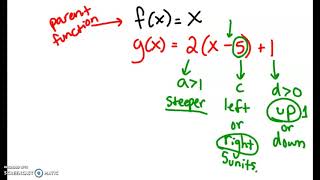 parent function
f(x) = x
g(x) = 2(x-5) + 1
a>1 c d>0
steeper left up 1
or or
right down
5 units.
SCREENCAST MATIC